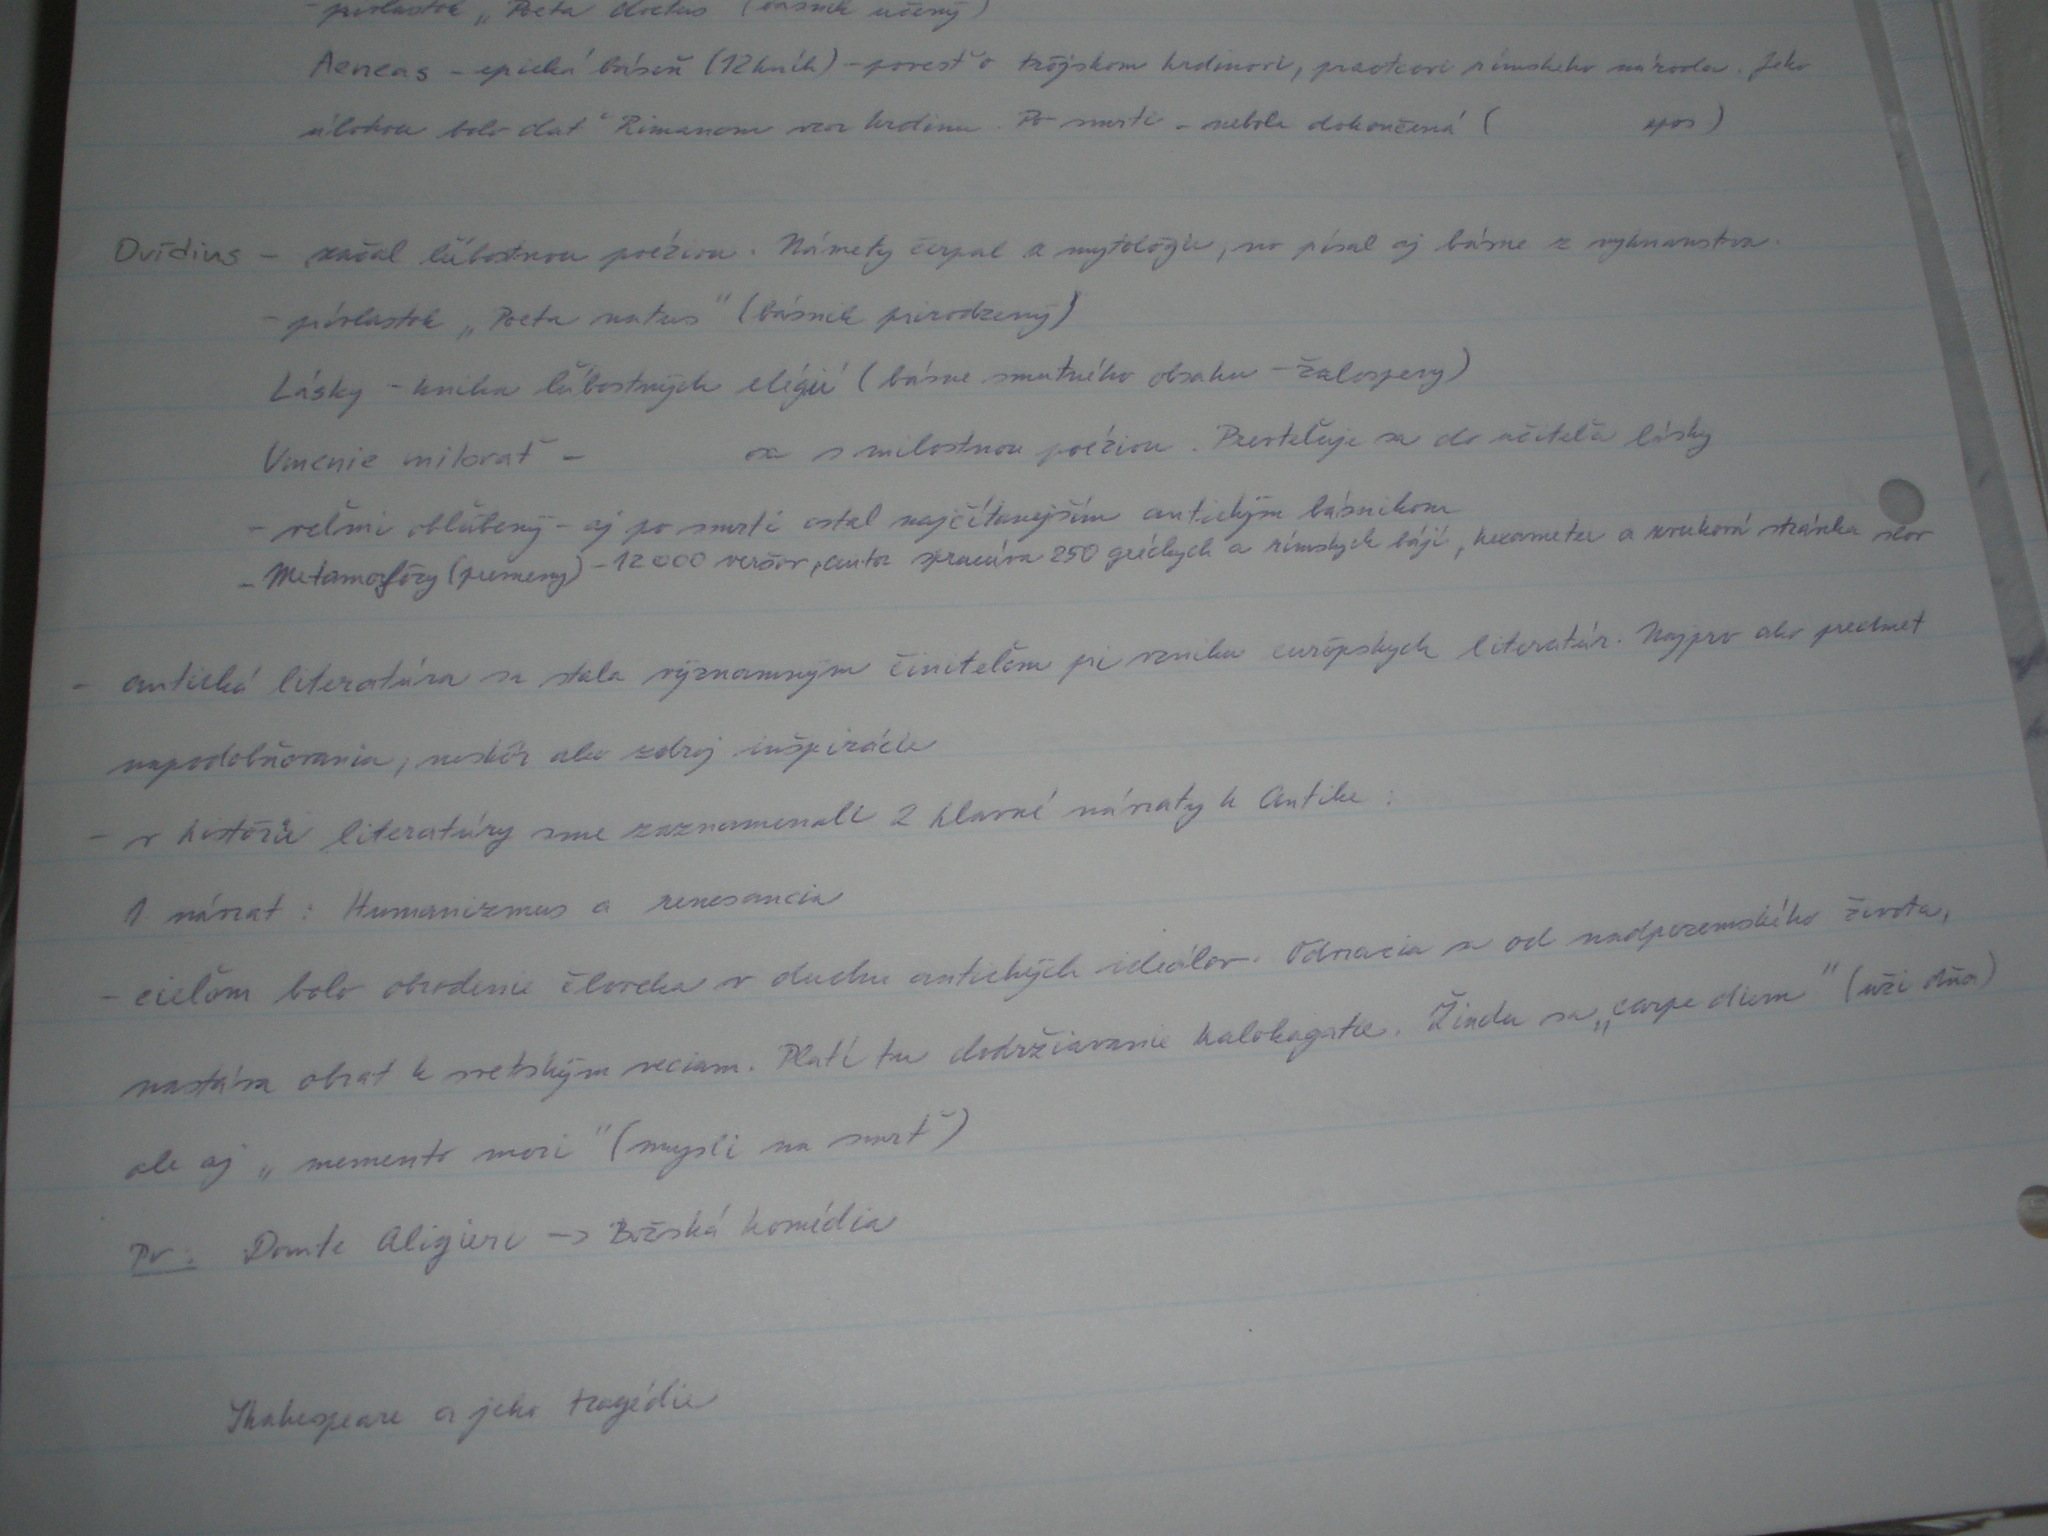 - prívlastok „Poeta doctus (básnik učený)
Aeneas - epická báseň (12 kníh) - povesť o trójskom hrdinovi, praotcovi rímskeho národa. Jeho
úlohou bolo dať Rimanom vzor hrdinu. Po smrti - nebola dokončená ( epos)
Ovídius - začal ľúbostnou poéziou. Námety čerpal z mytológie, no písal aj básne z vyhnanstva.
- prívlastok „Poeta natus" (básnik prirodzený)
Lásky - kniha ľúbostných elégií (básne smutného obsahu - žalospevy)
Umenie milovať - s milostnou poéziou. Prevteľuje sa do učiteľa lásky
- veľmi obľúbený - aj po smrti ostal najčítanejším antickým básnikom
- Metamorfózy (premeny) - 12 000 veršov, autor spracúva 250 gréckych a rímskych bájí, hexameter a zvuková stránka slov
- antická literatúra sa stala významným činiteľom pri vzniku európskych literatúr. Najprv ako predmet
napodobňovania, neskôr ako zdroj inšpirácie
- v histórii literatúry sme zaznamenali 2 hlavné návraty k Antike:
1 návrat: Humanizmus a renesancia
- cieľom bolo obrodenie človeka v duchu antických ideálov. Odvracia sa od nadpozemského života,
nastáva obrat k svetským veciam. Platí tu dodržiavanie kalokagatie. Žiada sa „carpe diem" (uži dňa)
ale aj „memento mori" (mysli na smrť)
Pr.: Dante Aligieri -> Božská komédia
Shakespeare a jeho tragédie